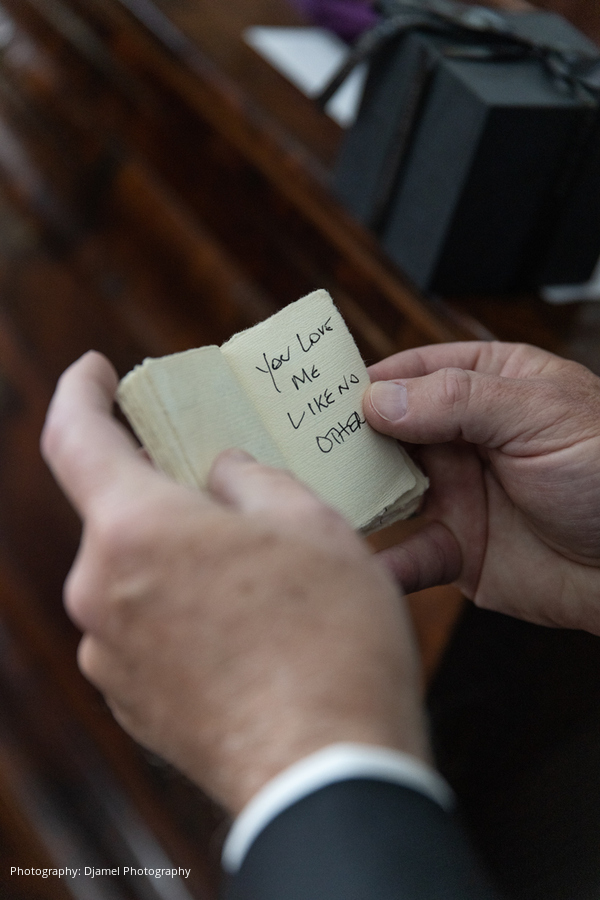 YOU LOVE
ME
LIKE NO
OTHER
Photography: Djamel Photography